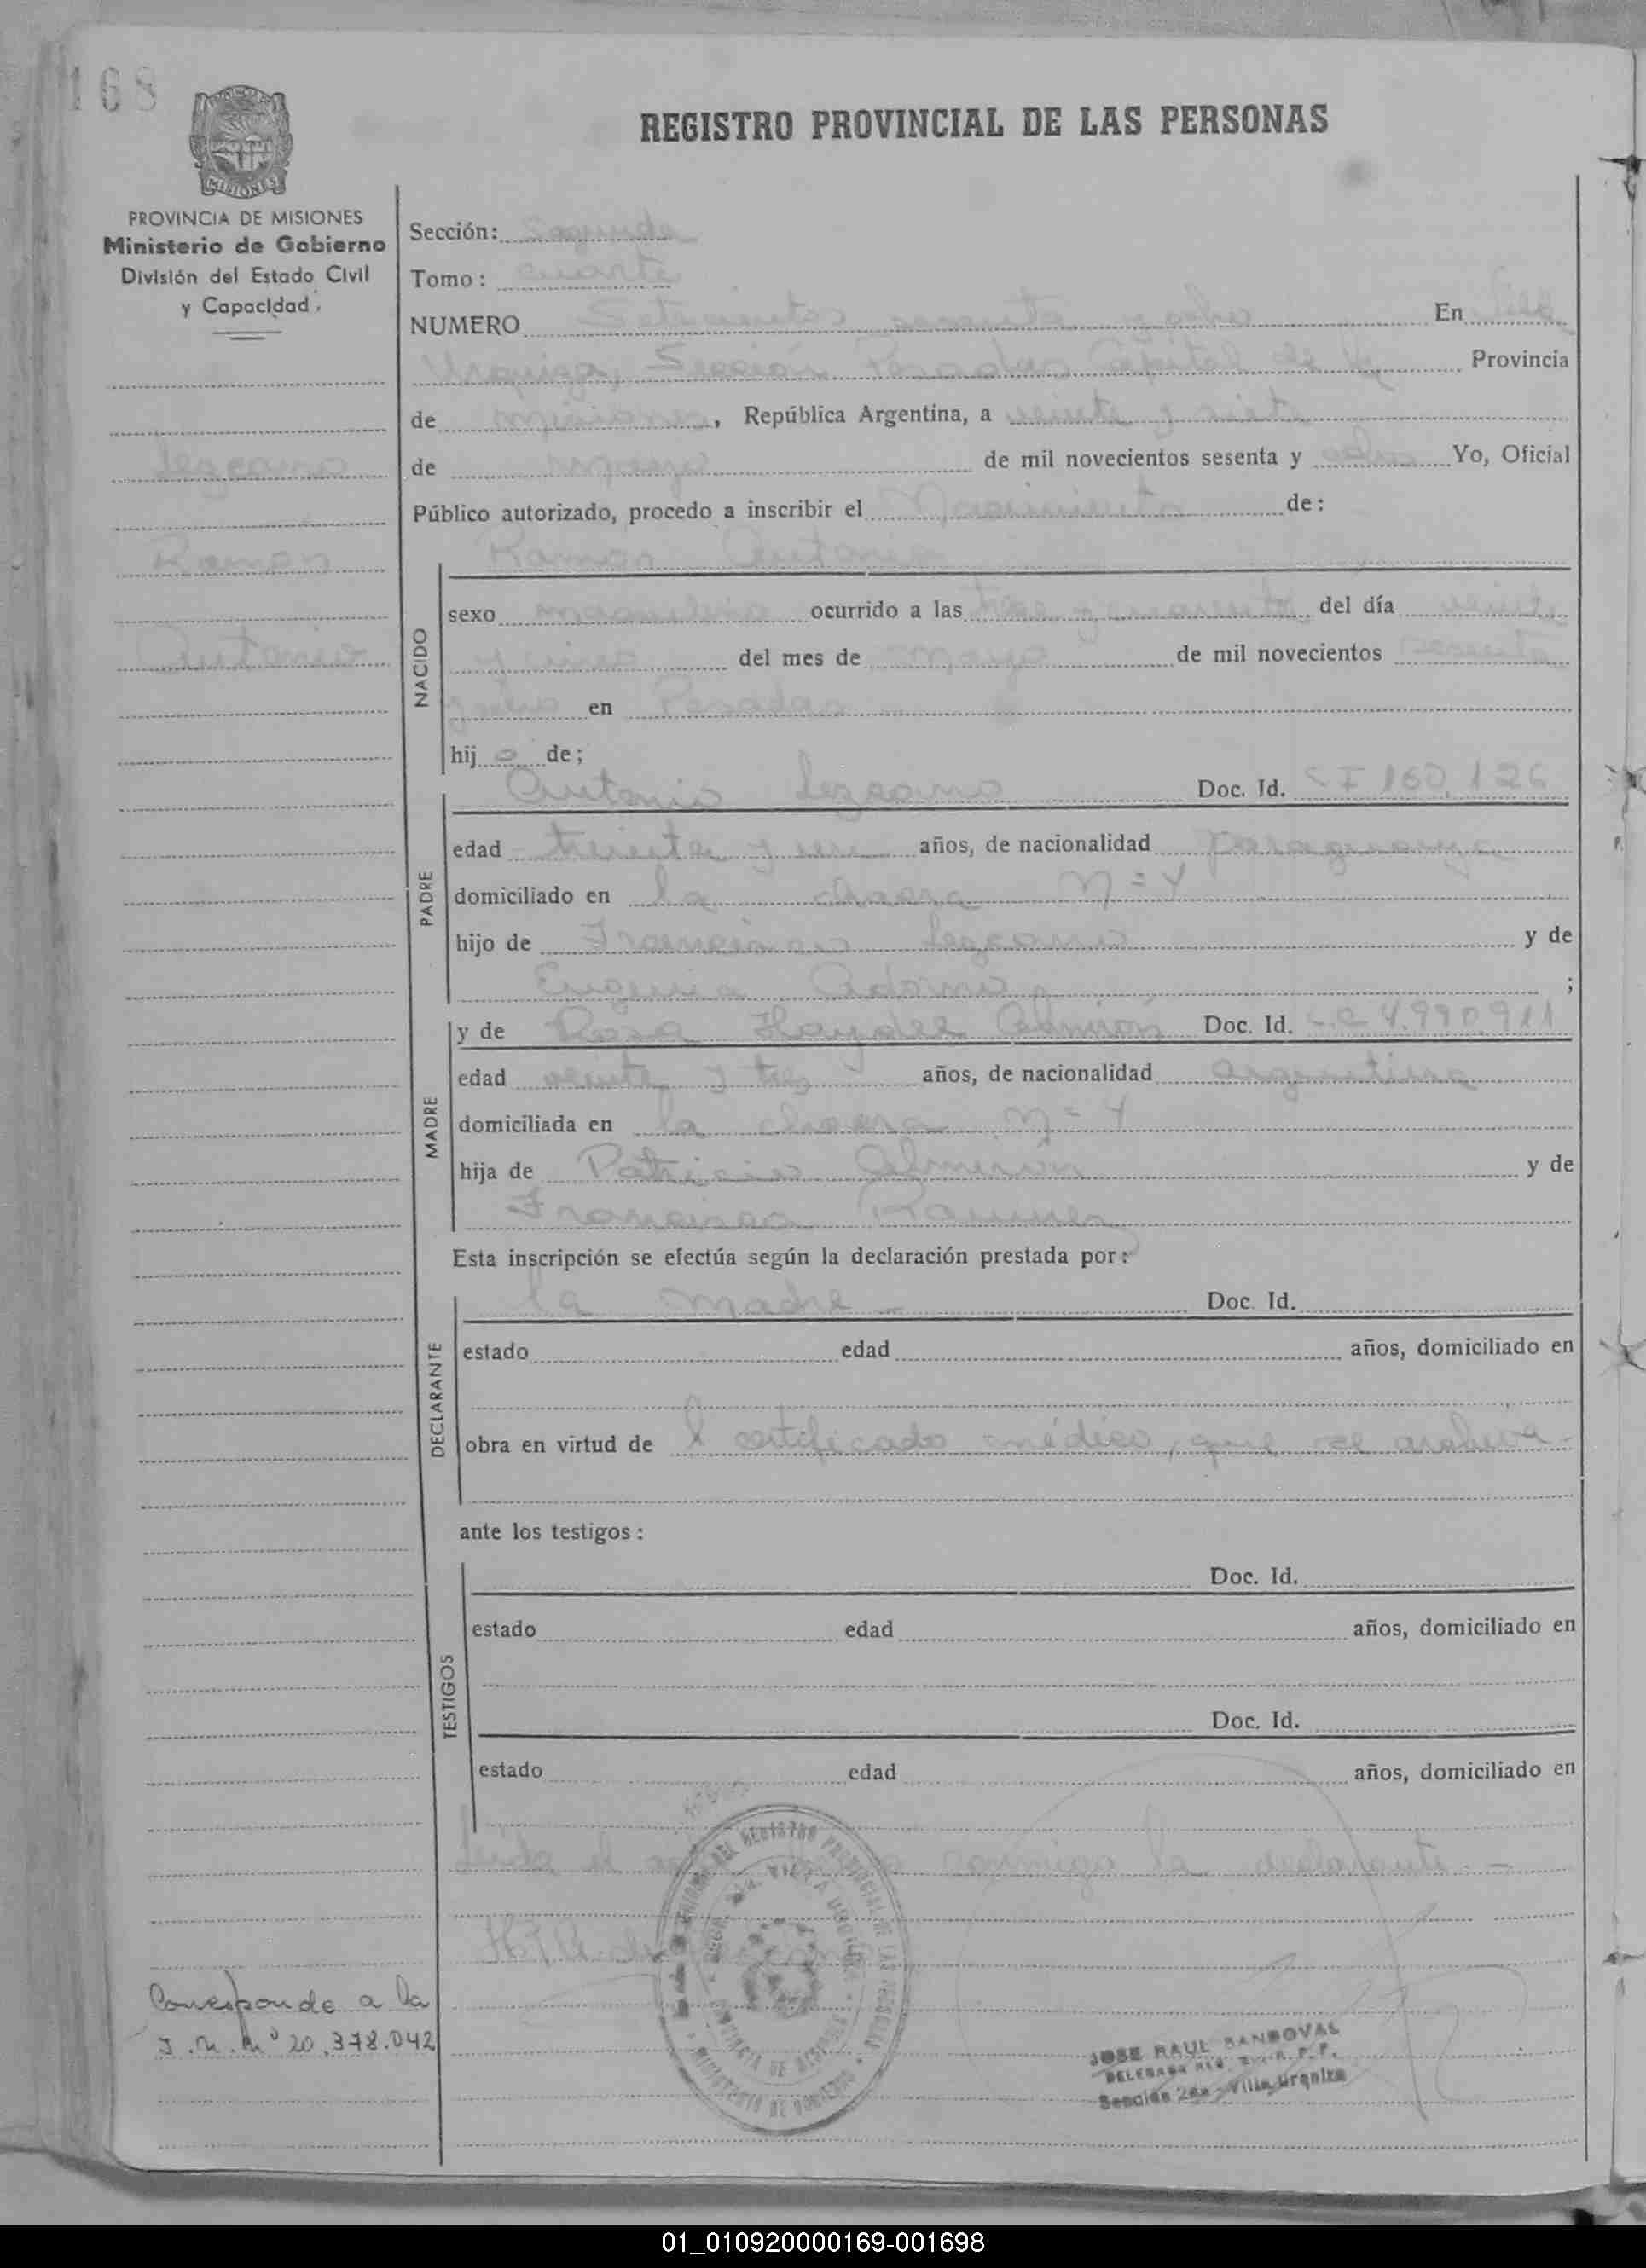 168
MISIONES
REGISTRO PROVINCIAL DE LAS PERSONAS
PROVINCIA DE MISIONES
Ministerio de Gobierno
División del Estado Civil
y Capacidad.
Lezcano
Ramon
Antonio
Sección: Segunda
Tomo: cuarto
NUMERO Setecientos sesenta y ocho En Villa
Urquiza, Sección Posadas Capital de la Provincia
de Misiones, República Argentina, a veinte y siete
de mayo de mil novecientos sesenta y ocho Yo, Oficial
Público autorizado, procedo a inscribir el Nacimiento de:
Ramon Antonio
NACIDO
sexo masculino ocurrido a las del día veinte
y cinco del mes de mayo de mil novecientos sesenta
y ocho en Posadas
hij o de;
PADRE
Antonio Lezcano Doc. Id. C I 160.126
edad treinta y un años, de nacionalidad paraguaya
domiciliado en la chacra Nº 4
hijo de Lezcano y de
Eugenia Adorno ;
MADRE
y de Rosa Haydee Almirón Doc. Id. L.C 4.990.911
edad veinte y tres años, de nacionalidad argentina
domiciliada en la chacra Nº 4
hija de Patricio Almirón y de
Francisca Ramirez
Esta inscripción se efectúa según la declaración prestada por:
DECLARANTE
la madre - Doc. Id.
estado edad años, domiciliado en
obra en virtud de l certificado médico, que se archiva-
ante los testigos:
TESTIGOS
Doc. Id.
estado edad años, domiciliado en
Doc. Id.
estado edad años, domiciliado en
Leida el acta conmigo la declarante -
Corresponde a la
I.N.Nº 20.378.042
JOSE RAUL SANDOVAL
Sección 2da - Villa Urquiza
01_010920000169-001698